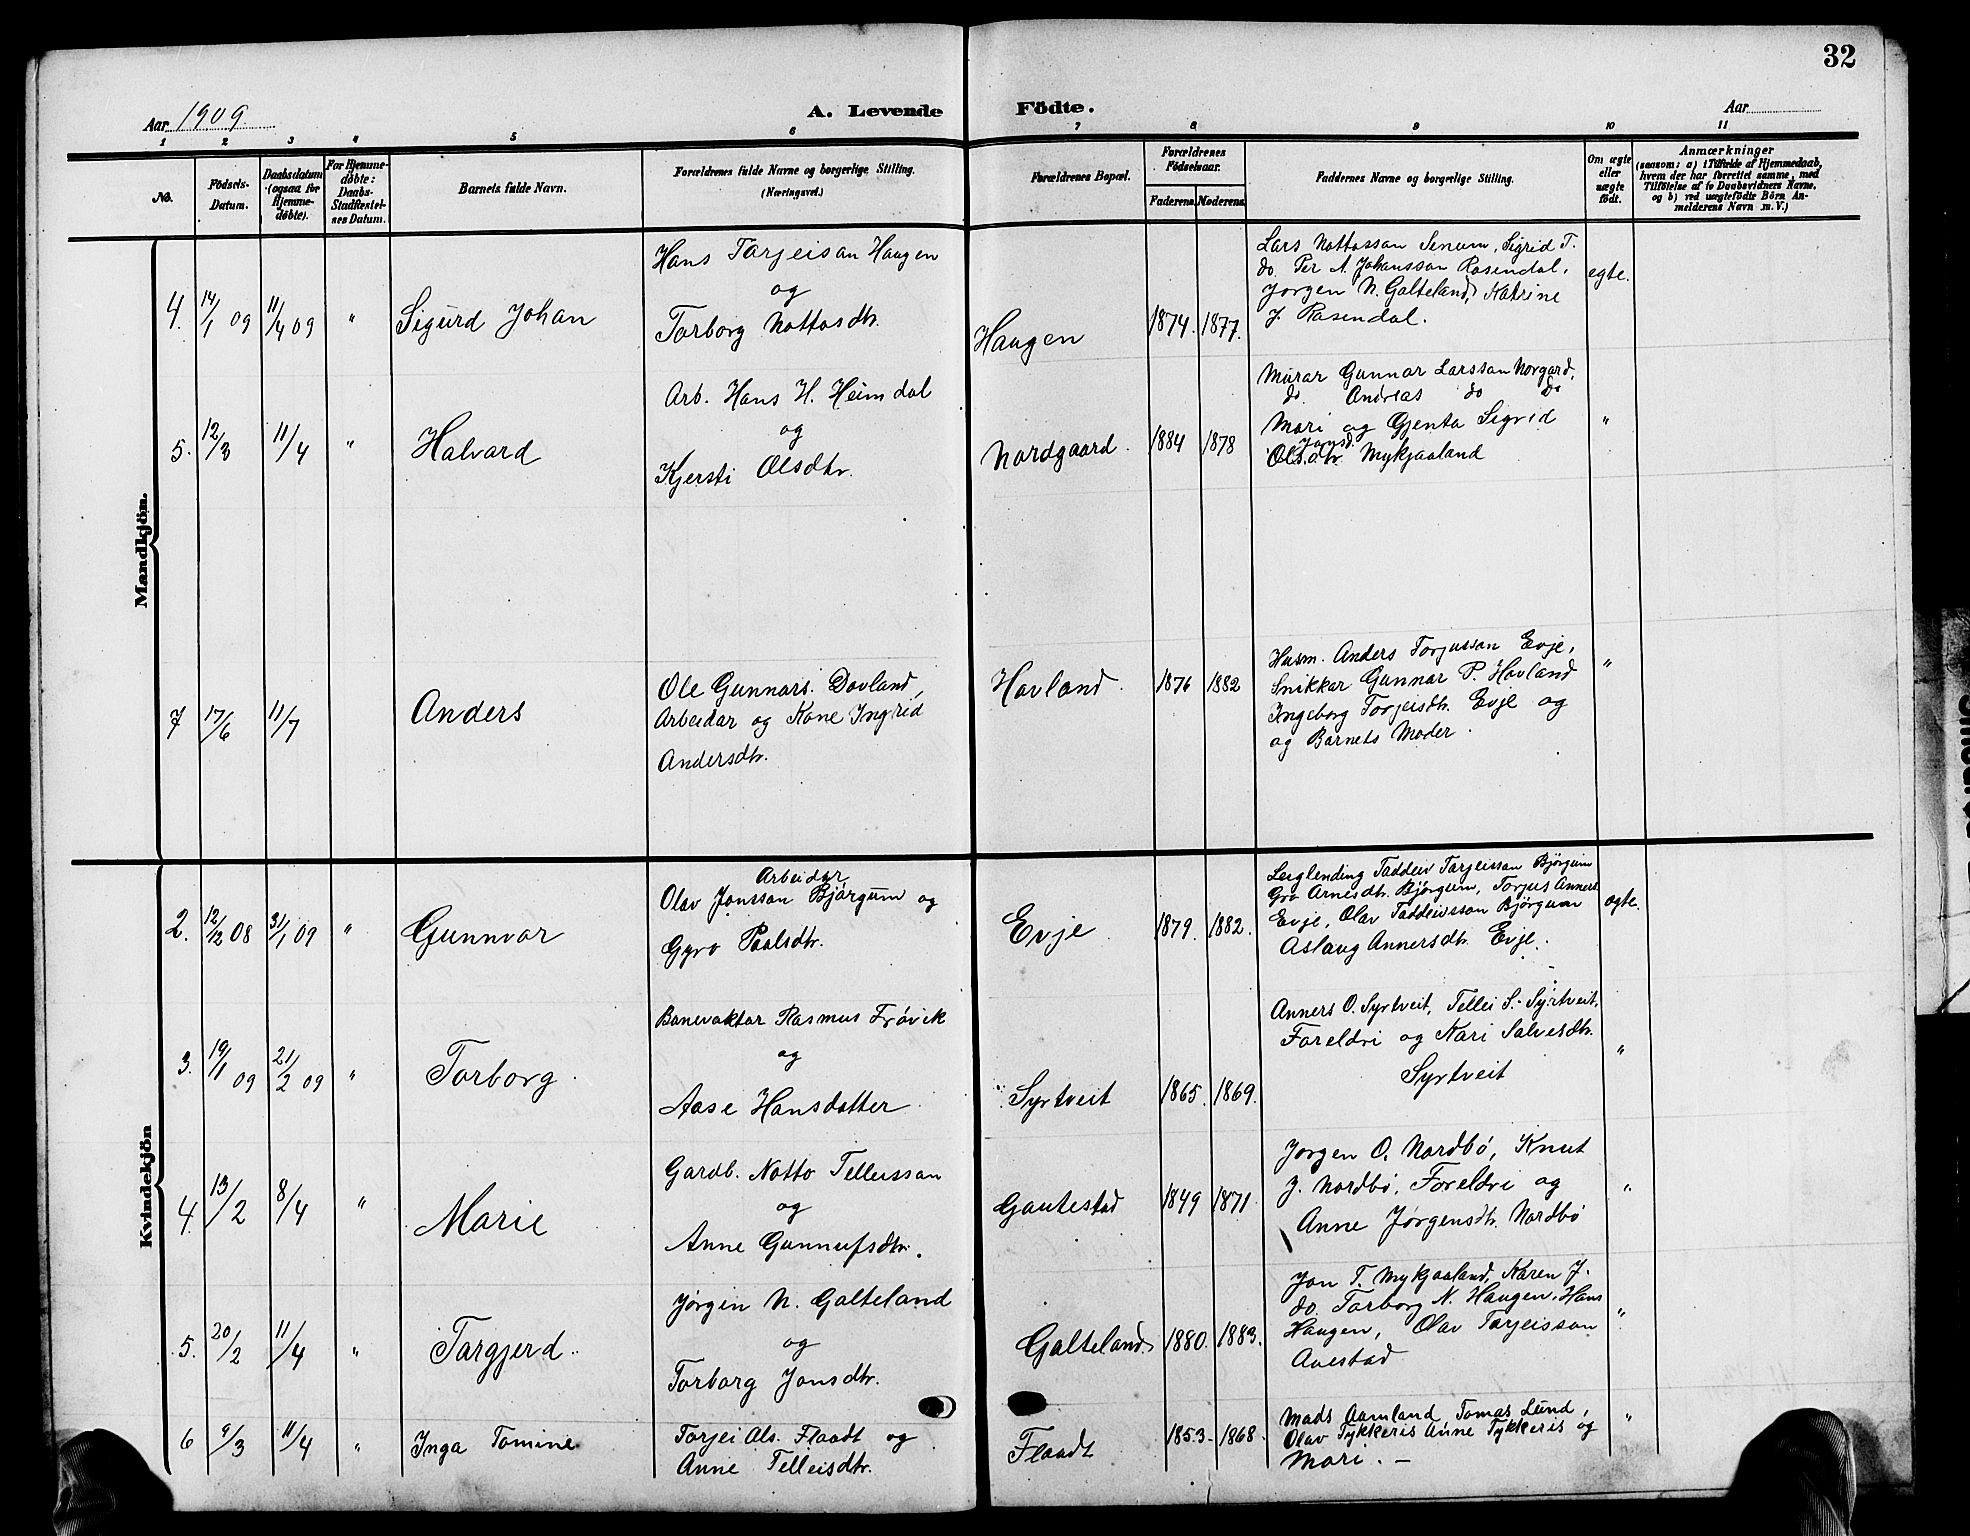 32
Aar 1909.
A. Levende Födte.
Aar
1 2 3 4 5 6 7 8 9 10 11
No.
Födsels-Datum.
Daabsdatum (ogsaa for Hjemmedøbte).
For Hjemmedøbte: Daabs-Stadfæstelses Datum.
Barnets fulde Navn.
Forældrenes fulde Navne og borgerlige Stilling.
(Næringsvei.)
Forældrenes Bopæl.
Forældrenes Fødselsaar.
Faderens.
Moderens.
Faddernes Navne og borgerlige Stilling.
Om ægte eller uægte født.
Anmærkninger
(saasom: a) i Tilfælde af Hjemmedaab,
hvem der har forrettet samme, med
Tilföielse af to Daabsvidners Navne,
og b) ved uægtefødte Börn An-
melderens Navn m. V.)
Mandkjön.
4. 14/1 09 11/4 09 " Sigurd Johan
Hans Tarjeisan Haugen
og
Torborg Nottosdtr.
Haugen 1874. 1877.
Lars Nottosson Senum, Sigrid T.
do. Per A Johansson Rosendal,
Jørgen N. Galteland, Katrine
J. Rosendal.
egte.
5. 12/3 11/4 " Halvard
Arb. Hans H. Heimdal
og
Kjersti Olsdtr.
Nordgaard. 1884 1878
Murar Gunnar Larsson Norgard,
do. Andreas do do
Mari og Gjenta Sigrid
Jonsd.
Olsdtr Mykjaaland
"
7 17/6 11/7 Anders
Ole Gunnars. Dovland,
Arbeidar og Kone Ingrid
Andersdtr.
Hovland. 1876 1882
Husm. Anders Torjusson Evje,
Snikkar Gunnar P. Hovland
Ingeborg Torjeisdtr. Evje og
og Barnets Moder.
"
Kvindekjön
2. 12/12 08 31/1 09 " Gunnvor
Arbeidar
Olav Jonsson Bjørgum og
Gyro Paalsdtr.
Evje. 1879. 1882.
Leiglending Taddeiv Tarjeisson Bjørgum
Gro Arnesdtr. Bjørgum, Torjus Anners.
Evje, Olav Taddeivsson Bjørgum
Aslaug Annersdtr. Evje.
egte.
3. 19/1 09 21/2 09 " Torborg.
Banevaktar Rasmus Frøvik
og
Aase Hansdotter
Syrtveit 1865. 1869.
Anners O. Syrtveit, Tellei S. Syrtveit,
Foreldri og Kari Salvesdtr.
Syrtveit
"
4. 13/2 8/4 " Marie
Gardb. Notto Telleissan
og
Anne Gunnufsdtr.
Gautestad 1849 1871.
Jorgen O. Nordbø, Knut
J. Nordbø, Foreldri og
Anne Jørgensdtr. Nordbø
"
5. 20/2 11/4 " Targjerd.
Jørgen N. Galteland
og
Torborg Jonsdtr.
Galteland. 1880. 1883.
Jon T. Mykjaaland, Karen J.
do. Torborg N. Haugen, Hans
Haugen, Olav Tarjeisson
Avestad
"
6 9/3 11/4 " Inga Tomine
Torjei Als. Flaadt og
Anne Telleisdtr.
Flaadt 1853. 1868.
Mads Aamland, Tomas Lund,
Olav Tykkeris Anne Tykkeris og
Mari. —
"